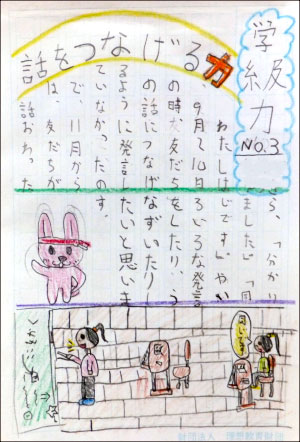 学級力
No.3
話をつなげる力
わたしは
、9月と10月
の時、友だち
の話につなげ
るように発言し
ていなかったの
で、11月から
は、友だちが
話おわった
ら、「分かり
ました」と「同
じです」やい
ろいろな発言
をしたり、う
なずいたりし
たいと思いま
す。
同じです
財団法人 理想教育財団